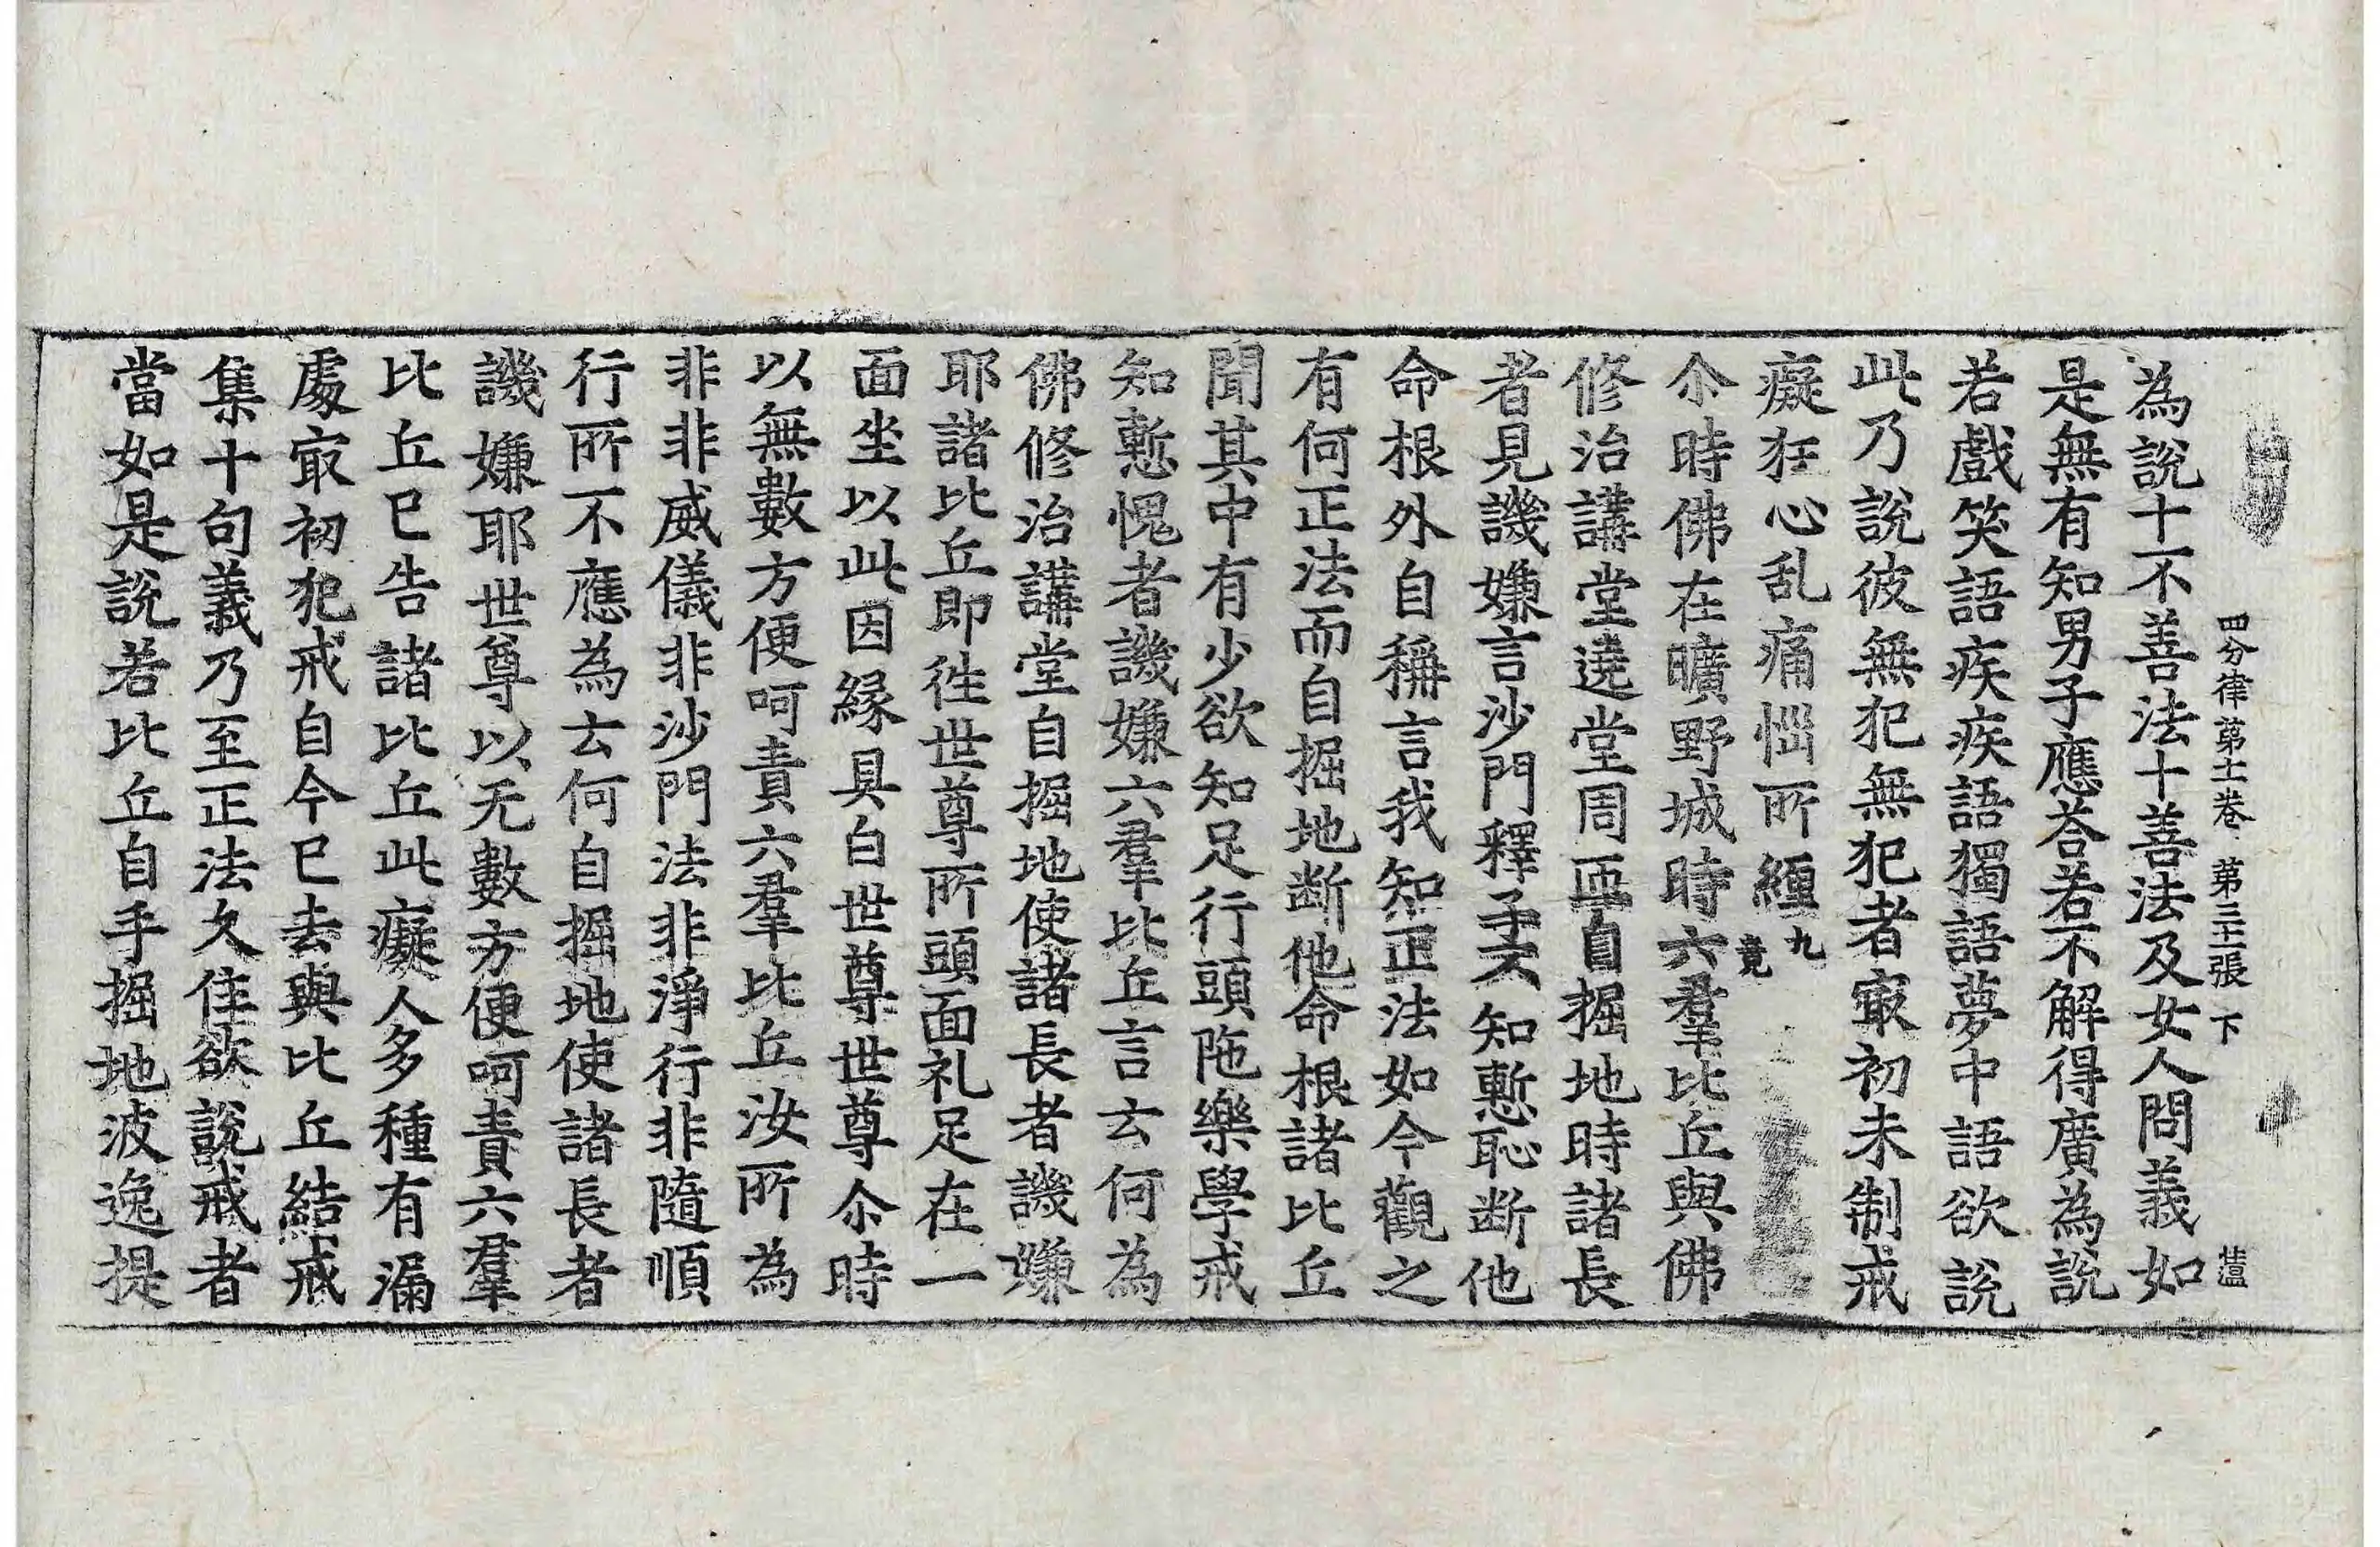 四分律第十一卷　第三十二張　下
為說十不善法十善法及女人問義如
是無有知男子應荅若不解得廣為說
若戲笑語疾疾語獨語夢中語欲說
此乃說彼無犯無犯者冣初未制戒
癡狂心乱痛惱所纏九竟
尒時佛在曠野城時六羣比丘與佛
修治講堂遶堂周匝自掘地時諸長
者見譏嫌言沙門釋子不知慙恥断他
命根外自稱言我知正法如今觀之
有何正法而自掘地断他命根諸比丘
聞其中有少欲知足行頭陁樂學戒
知慙愧者譏嫌六羣比丘言云何為
佛修治講堂自掘地使諸長者譏嫌
耶諸比丘即徃世尊所頭面礼足在一
面坐以此因緣具白世尊世尊尒時
以無數方便呵責六羣比丘汝所為
非非威儀非沙門法非淨行非隨順
行所不應為云何自掘地使諸長者
譏嫌耶世尊以无數方便呵責六羣
比丘已告諸比丘此癡人多種有漏
處冣初犯戒自今已去與比丘結戒
集十句義乃至正法久住欲說戒者
當如是說若比丘自手掘地波逸提